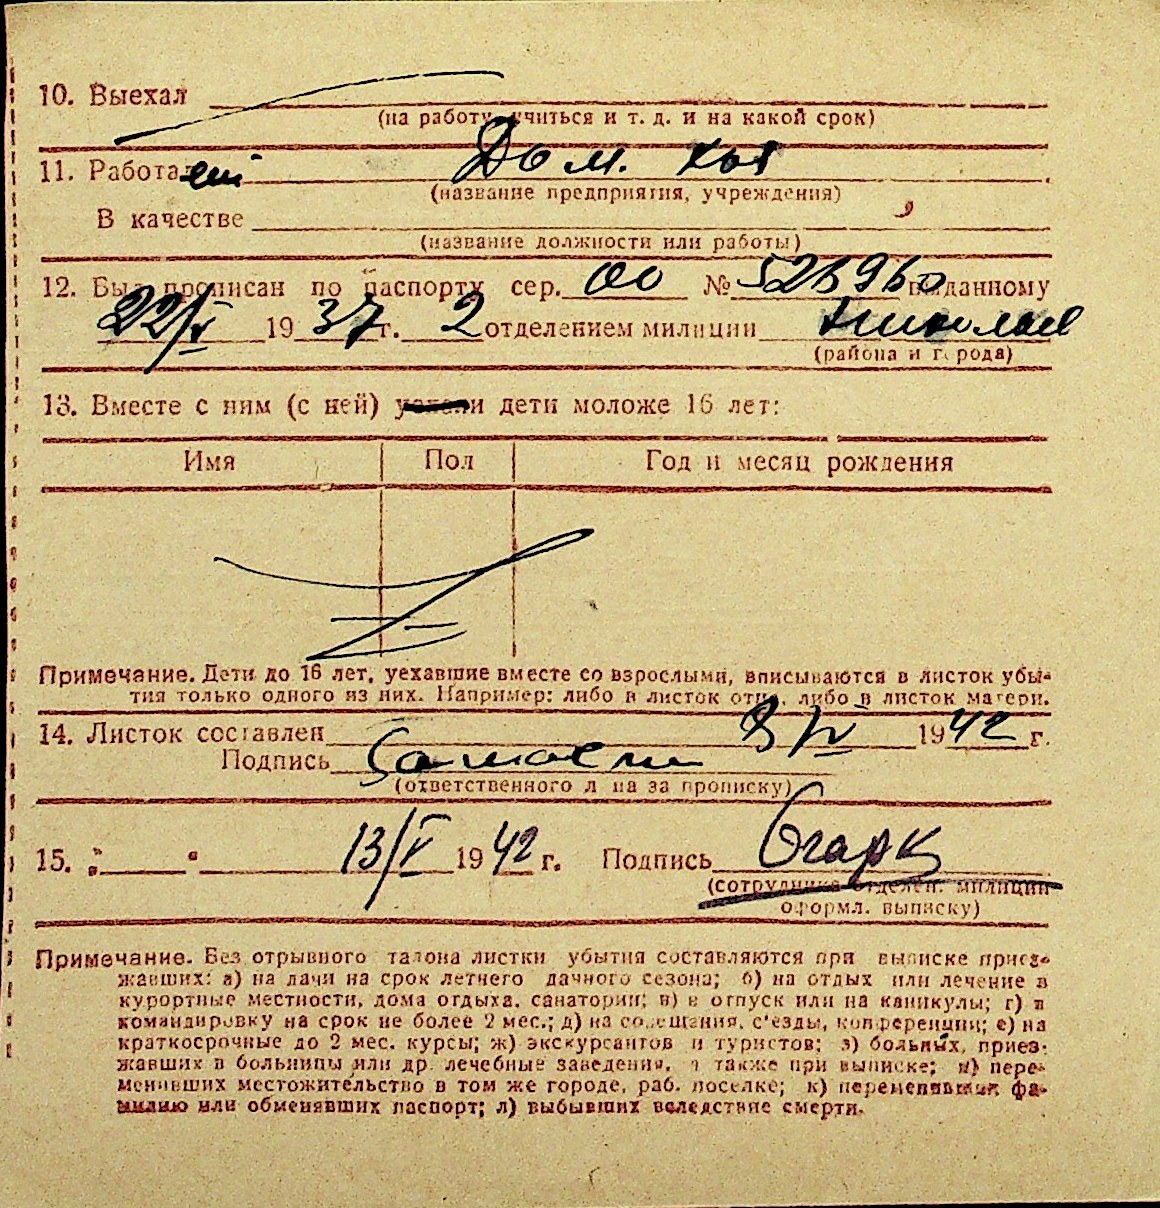 10. Выехал
(на работу, учиться и т. д. и на какой срок)
11. Работает Дом. хоз
(название предприятия, учреждения)
В качестве
(название должности или работы)
12. Был прописан по паспорту сер. оо № 526960 выданному
22/V 1937 г. 2 отделением милиции Николаев
(района и города)
13. Вместе с ним (с ней) уехали дети моложе 16 лет:
Имя Пол Год и месяц рождения
Примечание. Дети до 16 лет, уехавшие вместе со взрослыми, вписываются в листок убы-
тия только одного из них. Например: либо в листок отца, либо в листок матери.
14. Листок составлен 8/IV 1942 г.
Подпись
(ответственного лица за прописку)
15. „ “ 13/V 1942 г. Подпись Огарк
(сотрудника отделен. милиции
оформл. выписку)
Примечание. Без отрывного талона листки убытия составляются при выписке приез-
жавших: а) на дачи на срок летнего дачного сезона; б) на отдых или лечение в
курортные местности, дома отдыха, санатории; в) в отпуск или на каникулы; г) в
командировку на срок не более 2 мес.; д) на совещания, с'езды, конференции; е) на
краткосрочные до 2 мес. курсы; ж) экскурсантов и туристов; з) больных, приез-
жавших в больницы или др. лечебные заведения, а также при выписке; и) пере-
менивших местожительство в том же городе, раб. поселке; к) переменивших фа-
милию или обменявших паспорт; л) выбывших вследствие смерти.